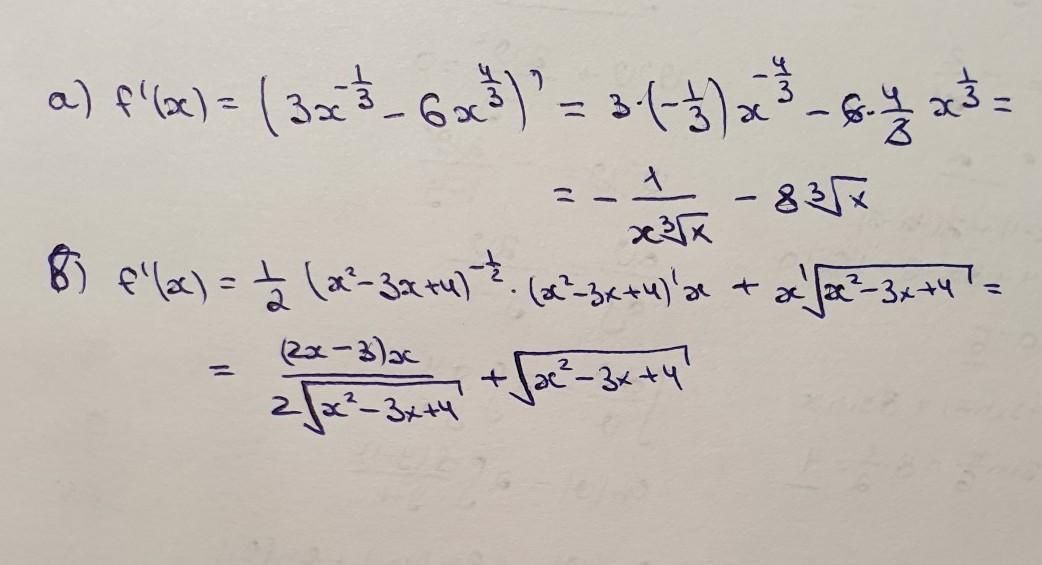 а) f'(x) = (3x^{-1/3} - 6x^{4/3})' = 3·(-1/3)x^{-4/3} - 6·4/3 x^{1/3} =
= - 1/(x∛x) - 8∛x
б) f'(x) = 1/2 (x²-3x+4)^{-1/2}·(x²-3x+4)'x + x'√(x²-3x+4) =
= (2x-3)x/(2√(x²-3x+4)) + √(x²-3x+4)